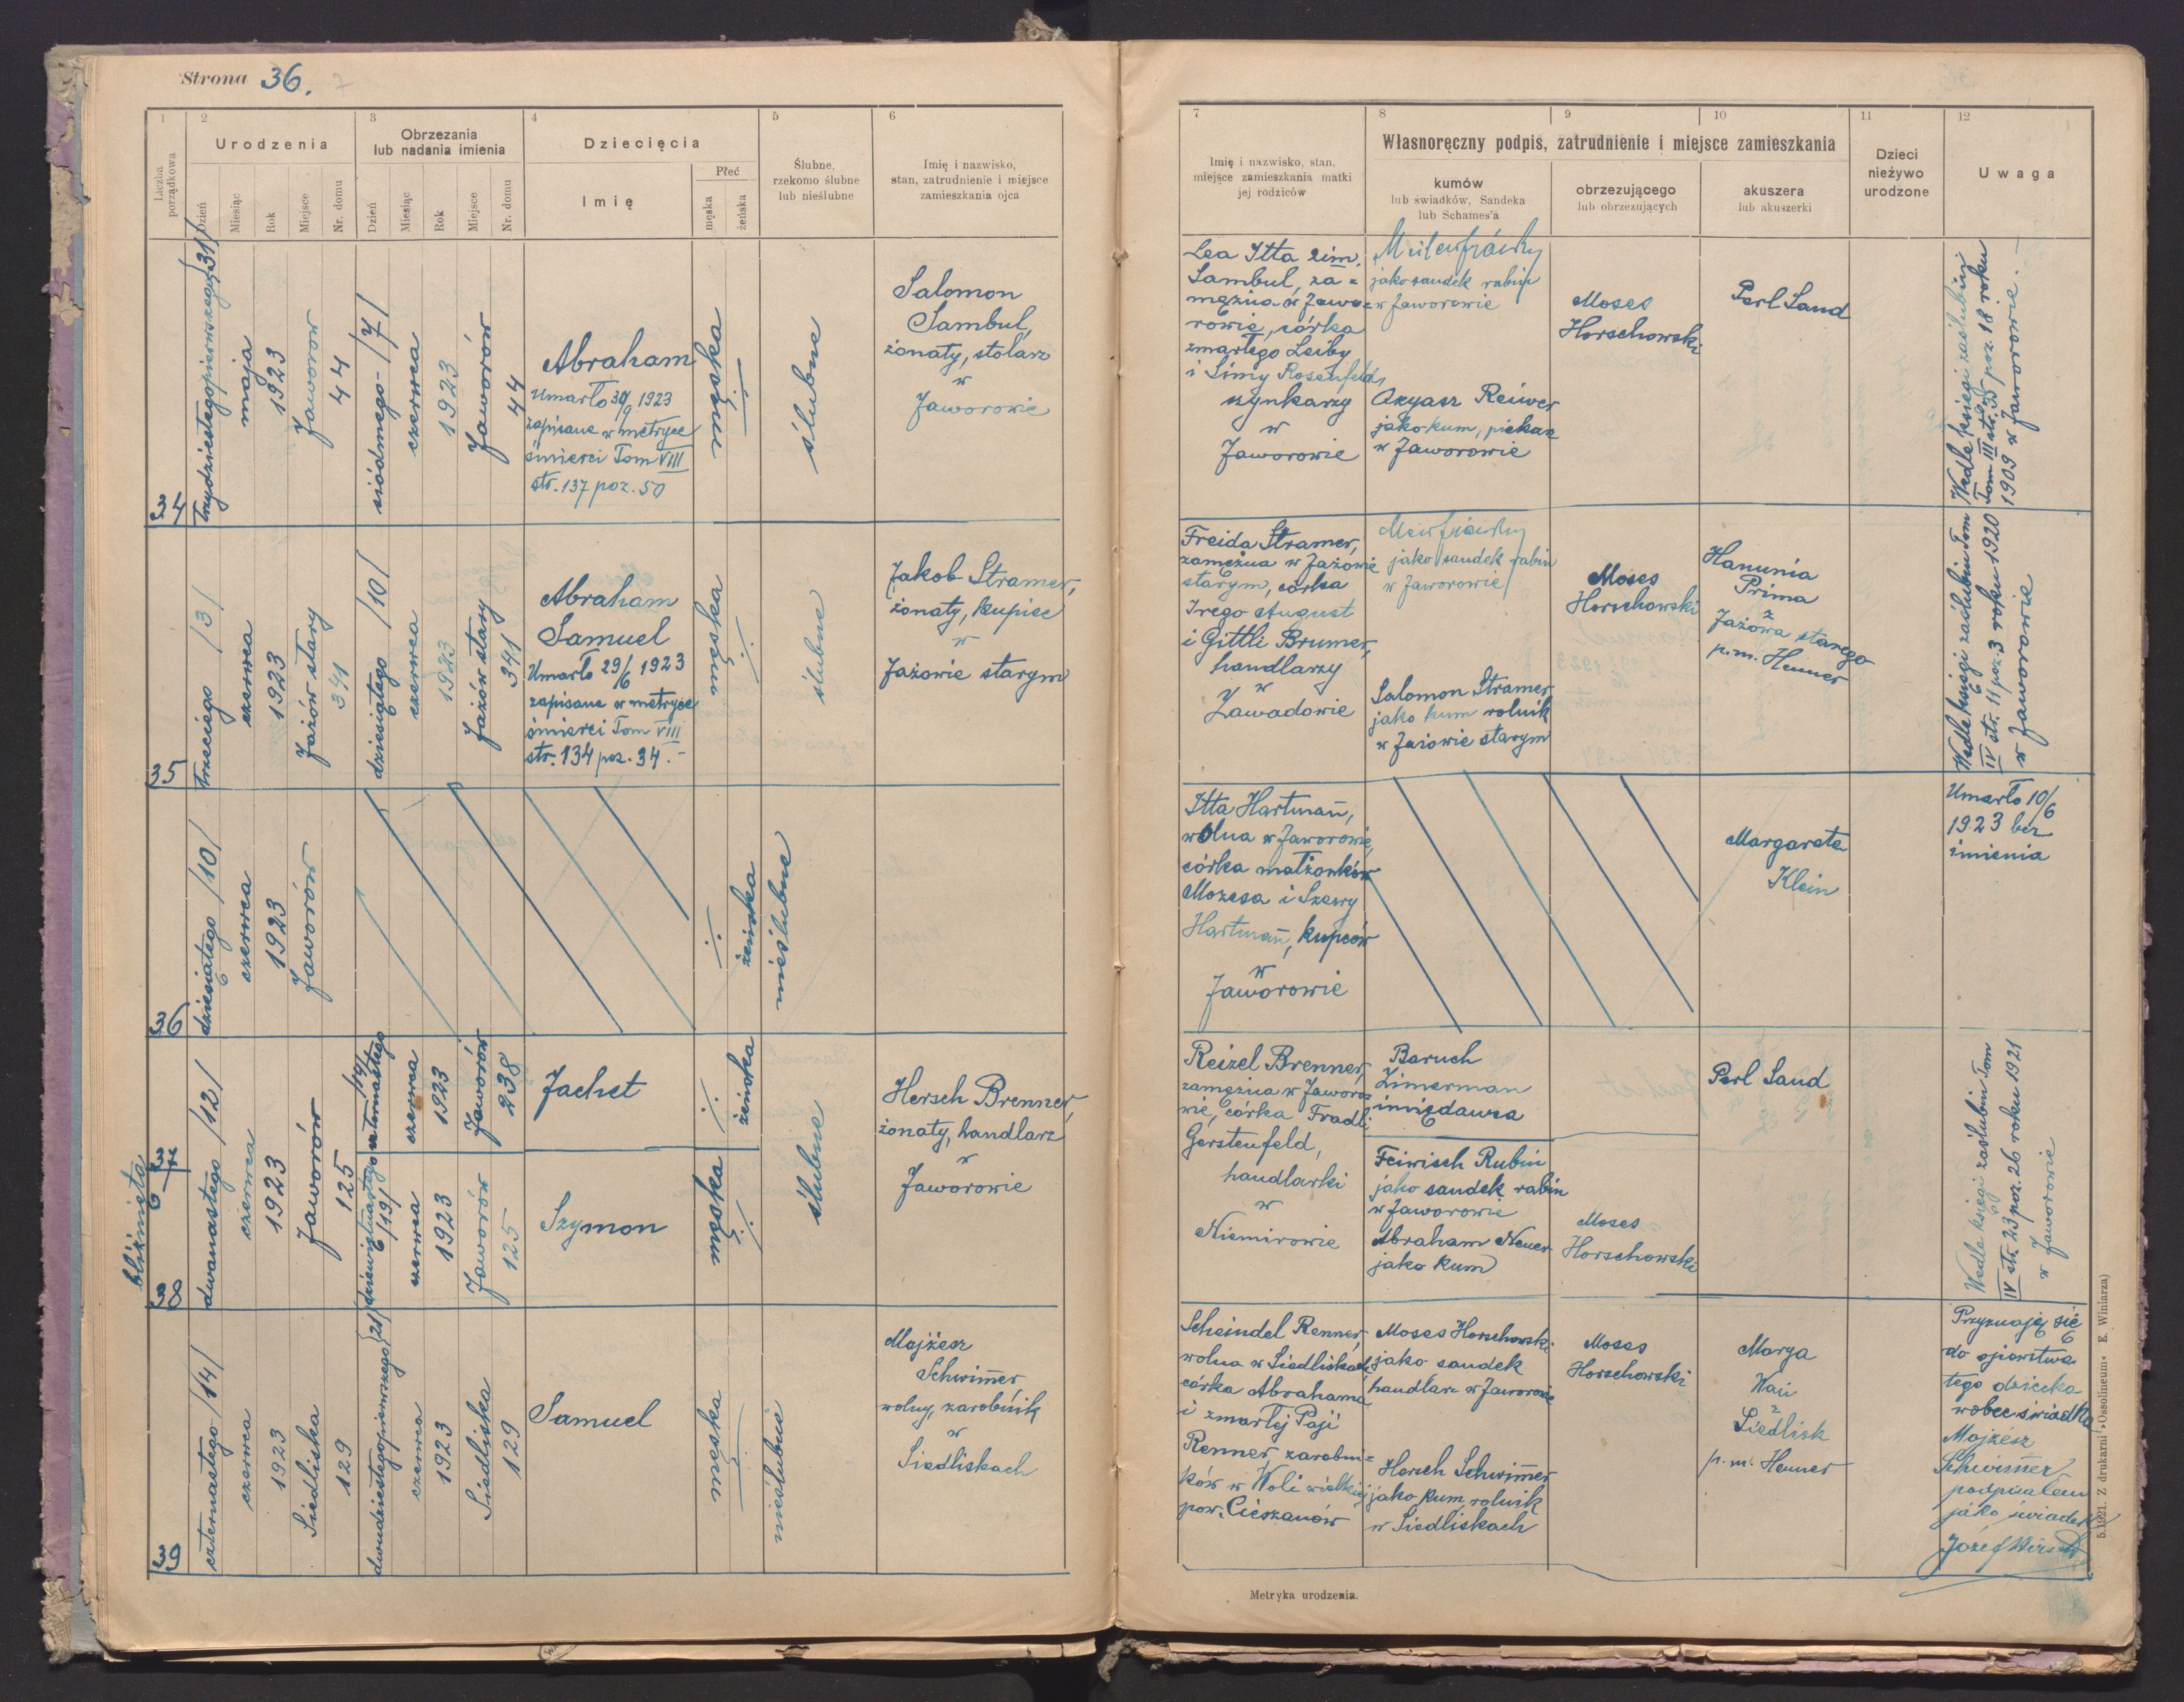 Strona 36.
1
2
3
4
5
6
Liczba porządkowa
Urodzenia
Obrzezania
lub nadania imienia
Dziecięcia
Ślubne,
rzekomo ślubne
lub nieślubne
Imię i nazwisko,
stan, zatrudnienie i miejsce
zamieszkania ojca
Dzień
Miesiąc
Rok
Miejsce
Nr. domu
Dzień
Miesiąc
Rok
Miejsce
Nr. domu
Imię
Płeć
męska
żeńska
7
8
9
10
11
12
Imię i nazwisko, stan,
miejsce zamieszkania matki
jej rodziców
Własnoręczny podpis, zatrudnienie i miejsce zamieszkania
kumów
lub świadków, Sandeka
lub Schames'a
obrzezującego
lub obrzezujących
akuszera
lub akuszerki
Dzieci
nieżywo
urodzone
Uwaga
34
trzydziestegopierwszego /31/
maja
1923
Jaworów
44
siódmego - /7/
czerwca
1923
Jaworów
44
Abraham
Umarło 30/9 1923
zapisane w metryce
śmierci Tom VIII
str. 137 poz. 50
męska
ślubne
Salomon
Sambul,
żonaty, stolarz
w
Jaworowie
Lea Itta 2im.
Sambul, za=
mężna w Jawo=
rowie, córka
zmarłego Leiby
i Simy Rosenfeld,
szynkarzy
w
Jaworowie
jako sandek rabin
w Jaworowie
Azyasz Reiwer
jako kum, piekarz
w Jaworowie
Moses
Horschowski
Perl Sand
Wedle księgi zaślubin
Tom III str. 35 poz. 18 roku
1909 w Jaworowie. -
35
trzeciego /3/
czerwca
1923
Jażów stary
341
dziesiątego /10/
czerwca
1923
Jażów stary
341
Abraham
Samuel
Umarło 29/6 1923
zapisane w metryce
śmierci Tom VIII
str. 134 poz. 34. -
męska
ślubne
Jakob Stramer,
żonaty, kupiec
w
Jażowie starym
Freida Stramer,
zamężna w Jażowie
starym, córka
Irego August
i Gittli Brumer,
handlarzy
w
Zawadowie
jako sandek rabin
w Jaworowie
Salomon Stramer
jako kum rolnik
w Jażowie starym
Moses
Horschowski
Hanunia
Prima
z
Jażowa starego
p.m. Henner
Wedle księgi zaślubin Tom
IV str. 11 poz. 3 roku 1920
w Jaworowie
36
dziesiątego /10/
czerwca
1923
Jaworów
żeńska
nieślubne
Itta Hartman,
wolna w Jaworowie,
córka małżonków
Mozesa i Szewy
Hartman, kupców
w
Jaworowie
Margareta
Klein
Umarło 10/6
1923 bez
imienia
bliźnięta
37
38
dwunastego /12/
czerwca
1923
Jaworów
125
czternastego /14/
czerwca
1923
Jaworów
238
Jachet
żeńska
ślubne
Hersch Brenner,
żonaty, handlarz
w
Jaworowie
Reizel Brenner,
zamężna w Jaworo=
wie, córka Fradli
Gerstenfeld,
handlarki
w
Niemirowie
Baruch
Zimerman
imiędawca
Perl Sand
dziewiętnastego /19/
czerwca
1923
Jaworów
125
Szymon
męska
Feiwisch Rubin
jako sandek rabin
w Jaworowie
Abraham Neuer
jako kum
Moses
Horschowski
Wedle księgi zaślubin Tom
IV str. 23 poz. 26 roku 1921
w Jaworowie
39
czternastego /14/
czerwca
1923
Siedliska
129
dwudziestegopierwszego /21/
czerwca
1923
Siedliska
129
Samuel
męska
nieślubne
Majżesz
Schwimer
wolny, zarobnik
w
Siedliskach
Scheindel Renner,
wolna w Siedliskach,
córka Abrahama
i zmarłej Paji
Renner, zarobni=
ków w Woli wielkiej
pow. Cieszanów
Moses Horschowski
jako sandek
handlarz w Jaworowie
Hersch Schwimer
jako kum, rolnik
w Siedliskach
Moses
Horschowski
Marya
z
Siedlisk
p. m. Henner
Przyznaję się
do ojcostwa
tego dziecka
wobec świadka
Mojżesz
Schwimer
podpisałem
jako świadek
Józef
Metryka urodzenia.
5.1921. Z drukarni »Ossolineum« E. Winiarza)